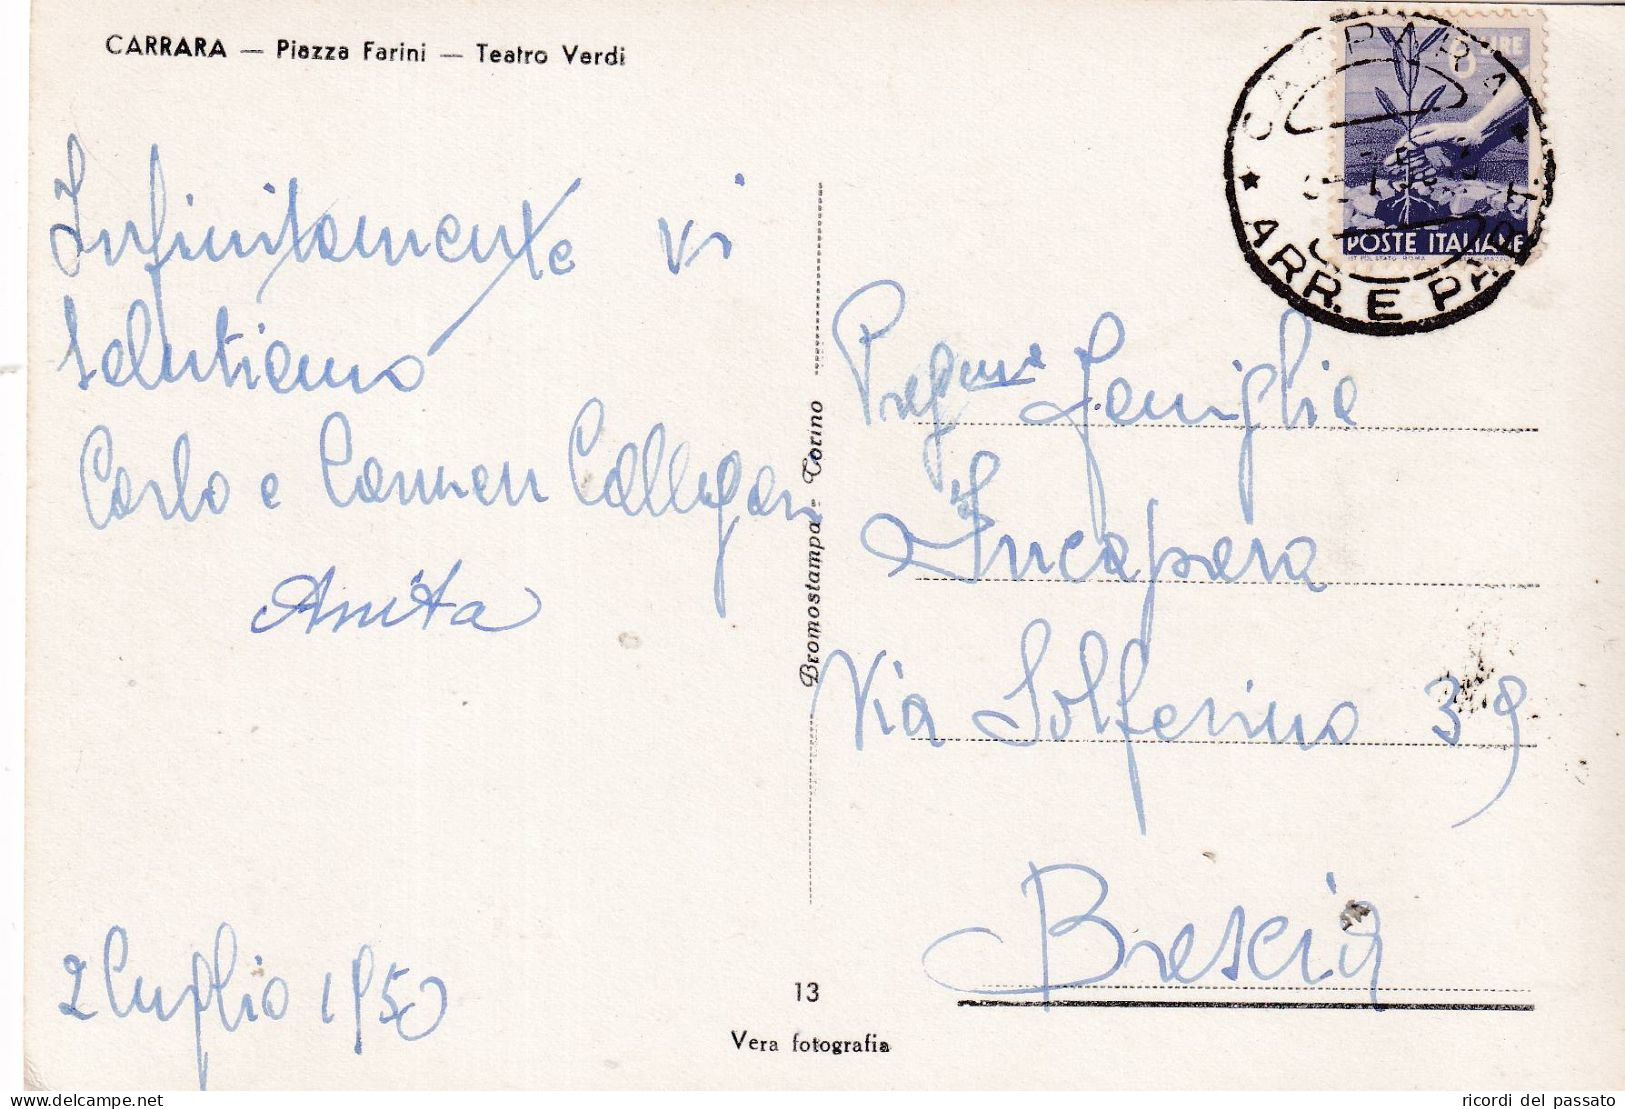 CARRARA — Piazza Farini — Teatro Verdi
Infinitamente vi
salutiamo
Carlo e Carmen Callegari
Anita
2 Luglio 1950
Bromostampa - Torino
13
Vera fotografia
6 LIRE
POSTE ITALIANE
CARRARA
ARR. E PART.
Famiglia
Incapera
Via Solferino 39
Brescia
ricordi del passato